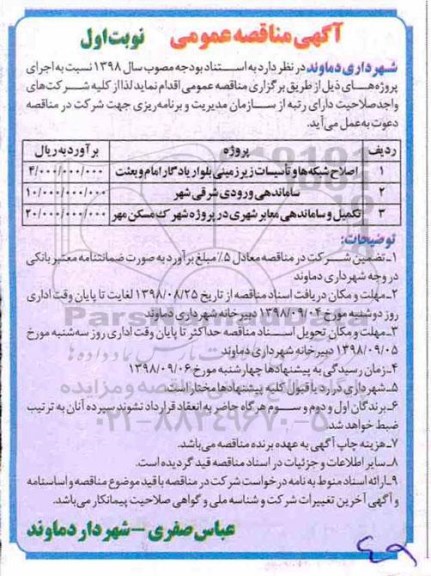 آگهی مناقصه عمومی نوبت اول
شهرداری دماوند در نظر دارد به استناد بودجه مصوب سال ۱۳۹۸ نسبت به اجرای
پروژه‌های ذیل از طریق برگزاری مناقصه عمومی اقدام نماید لذا از کلیه شرکت‌های
واجد صلاحیت دارای رتبه از سازمان مدیریت و برنامه ریزی جهت شرکت در مناقصه
دعوت به عمل می‌آید.
ردیف پروژه برآورد به ریال
۱ اصلاح شبکه‌ها و تأسیسات زیرزمینی بلوار یادگار امام و بعثت ۴/۰۰۰/۰۰۰/۰۰۰
۲ ساماندهی ورودی شرقی شهر ۱۰/۰۰۰/۰۰۰/۰۰۰
۳ تکمیل و ساماندهی معابر شهری در پروژه شهرک مسکن مهر ۲۰/۰۰۰/۰۰۰/۰۰۰
توضیحات:
۱-تضمین شرکت در مناقصه معادل ۵٪ مبلغ برآورد به صورت ضمانتنامه معتبر بانکی
در وجه شهرداری دماوند
۲-مهلت و مکان دریافت اسناد مناقصه از تاریخ ۱۳۹۸/۰۸/۲۵ لغایت تا پایان وقت اداری
روز دوشنبه مورخ ۱۳۹۸/۰۹/۰۴ دبیرخانه شهرداری دماوند
۳-مهلت و مکان تحویل اسناد مناقصه حداکثر تا پایان وقت اداری روز سه‌شنبه مورخ
۱۳۹۸/۰۹/۰۵ دبیرخانه شهرداری دماوند
۴-زمان رسیدگی به پیشنهادها چهارشنبه مورخ ۱۳۹۸/۰۹/۰۶
۵-شهرداری در رد یا قبول کلیه پیشنهادها مختار است.
۶-برندگان اول و دوم و سوم هرگاه حاضر به انعقاد قرارداد نشوند سپرده آنان به ترتیب
ضبط خواهد شد.
۷-هزینه چاپ آگهی به عهده برنده مناقصه می‌باشد.
۸-سایر اطلاعات و جزئیات در اسناد مناقصه قید گردیده است.
۹-ارائه اسناد منوط به نامه درخواست شرکت در مناقصه با قید موضوع مناقصه و اساسنامه
و آگهی آخرین تغییرات شرکت و شناسه ملی و گواهی صلاحیت پیمانکار می‌باشد.
عباس صفری - شهردار دماوند
۰۲۱-۸۸۳۴۹۶۷۰-۵